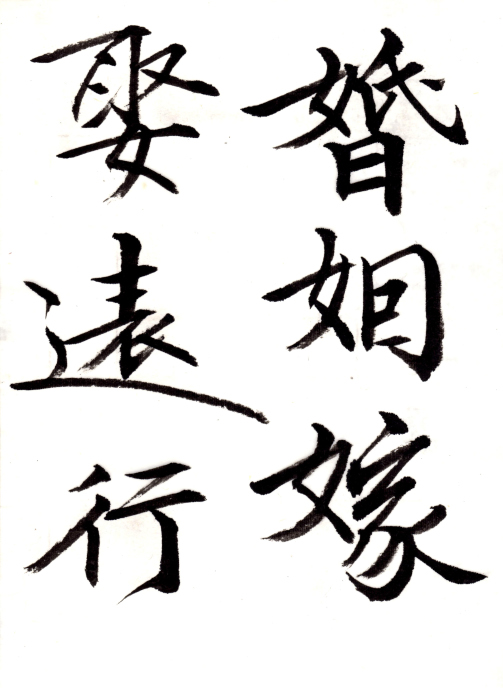 婚姻嫁
娶遠行